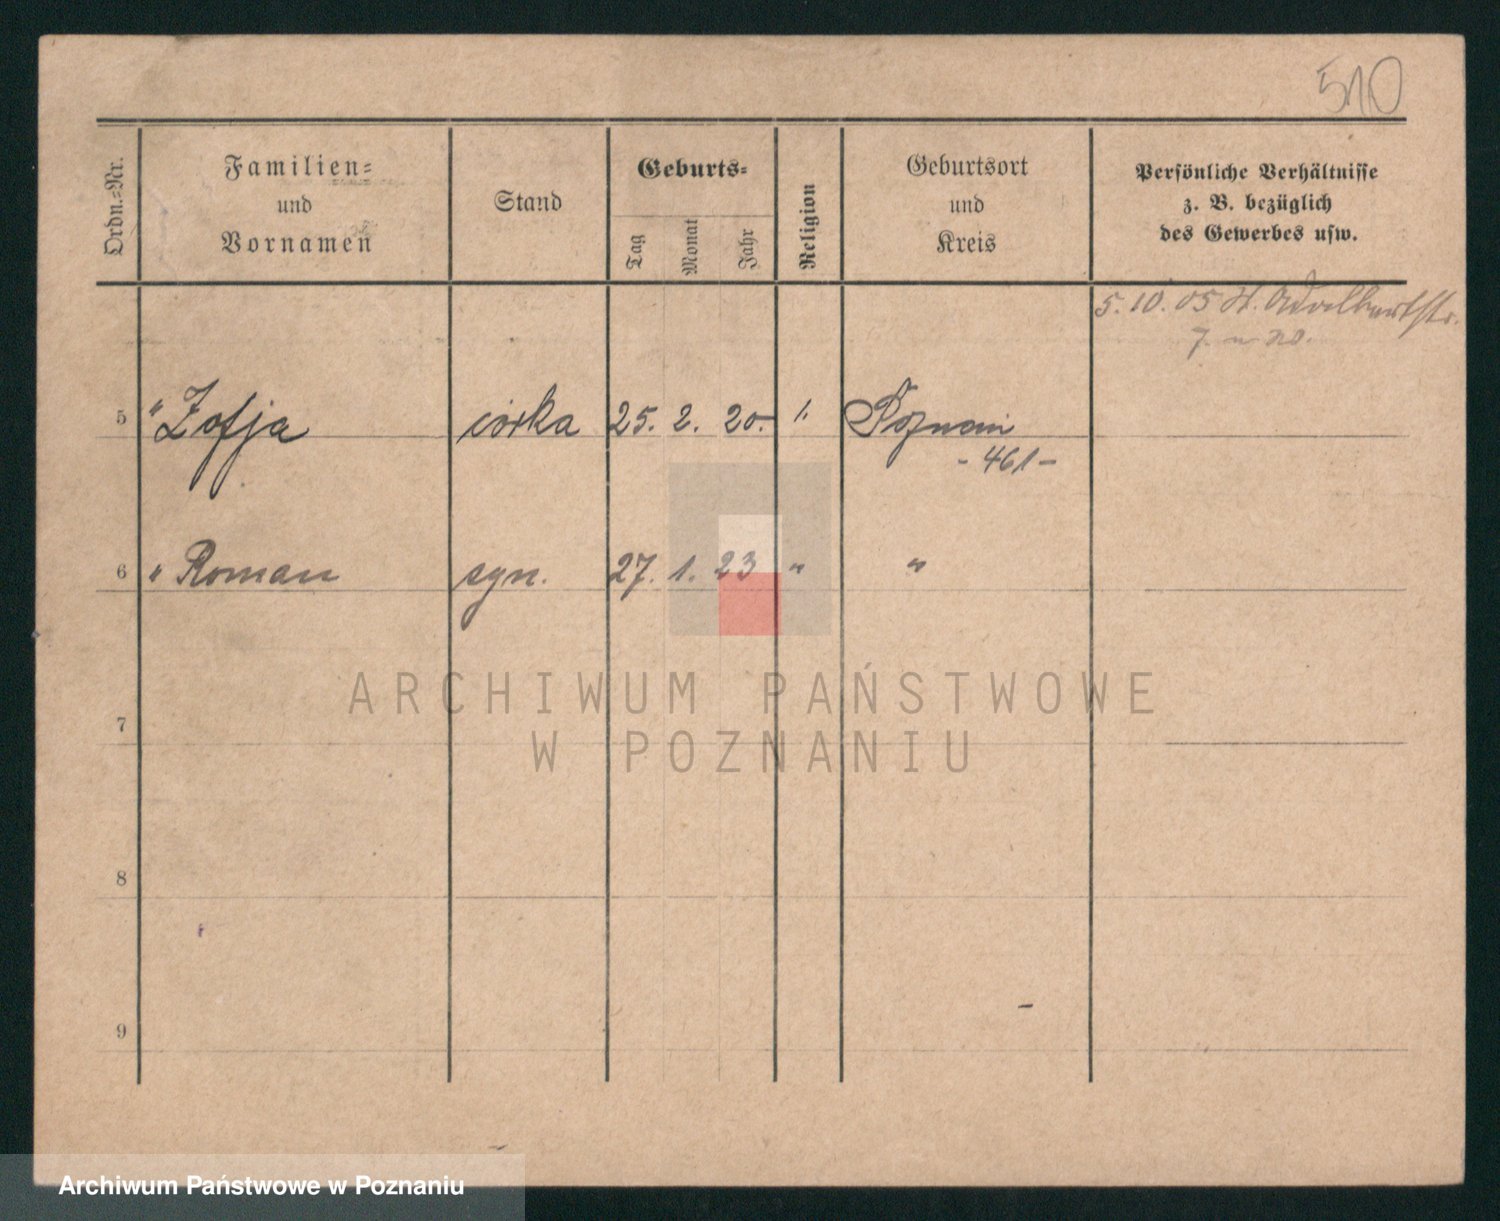 510
Ordn.=Nr.
Familien=
und
Vornamen
Stand
Geburts=
Tag
Monat
Jahr
Religion
Geburtsort
und
Kreis
Persönliche Verhältnisse
z. B. bezüglich
des Gewerbes usw.
5. 10. 05 St. Adalbertstr.
7.
5 " Zofja córka 25. 2. 20. Poznań
- 461 -
6 " Roman syn. 27. 1. 23 " "
7
8
9
ARCHIWUM PAŃSTWOWE
W POZNANIU
Archiwum Państwowe w Poznaniu